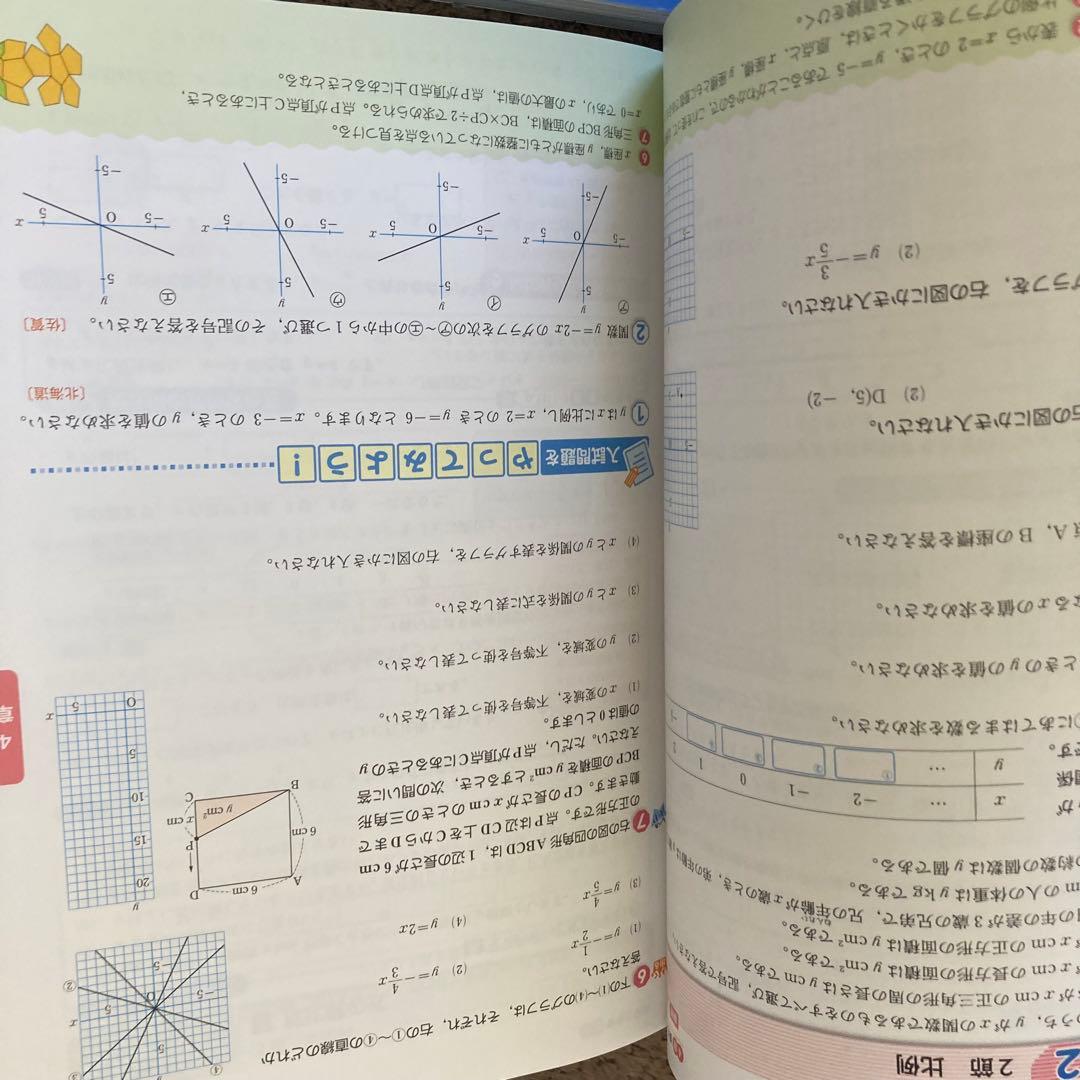 2節 比例
のうち，yがxの関数であるものをすべて選び，記号で答えなさい。
がx cmの正三角形の周の長さはy cmである。
がx cmの長方形の面積はy cm²である。
がx cmの正方形の面積はy cm²である。
の年の差が3歳の兄弟で，兄の年齢がx歳のとき，弟の年
cmの人の体重はy kgである。
の約数の個数はy個である。
x … −2 −1 0 1 2
y … ① ② ③
①にあてはまる数を求めなさい。
ときのyの値を求めなさい。
なるxの値を求めなさい。
点A，Bの座標を答えなさい。
右の図にかき入れなさい。
(2) D(5，−2)
グラフを，右の図にかき入れなさい。
(2) y=−3/5x
表から x=2 のとき，y=−5 であることがわかるので，これを使って
比例のグラフをかくときは，原点と，x座標，y座標ともに整数であ
通る直線をひく。
6 下の(1)〜(4)のグラフは，それぞれ，右の①〜④の直線のどれか
答えなさい。
(1) y=−1/2x (2) y=−4/3x
(3) y=4/5x (4) y=2x
② ③ ④
O 5 −5 5 −5 x y
7 右の図の四角形ABCDは，1辺の長さが6cm
の正方形です。点Pは辺CD上をCからDまで
動きます。CPの長さがx cmのときの三角形
BCPの面積をy cm²とするとき，次の問いに答
えなさい。ただし，点Pが頂点Cにあるときのy
の値は0とします。
A 6cm D
6cm P
x cm
y cm²
B C
y
20
15
10
5
O 5 x
(1) xの変域を，不等号を使って表しなさい。
(2) yの変域を，不等号を使って表しなさい。
(3) xとyの関係を式に表しなさい。
(4) xとyの関係を表すグラフを，右の図にかき入れなさい。
4章
入試問題を やってみよう！
1 yはxに比例し，x=2 のとき y=−6 となります。x=−3 のとき，yの値を求めなさい。
〔北海道〕
2 関数 y=−2x のグラフを次の㋐〜㋓の中から1つ選び，その記号を答えなさい。 〔佐賀〕
㋐ y 5 −5 O 5 x −5
㋑ y 5 −5 O 5 x −5
㋒ y 5 −5 O 5 x −5
㋓ y 5 −5 O 5 x −5
6 x座標，y座標がともに整数になっている点を見つける。
7 三角形BCPの面積は，BC×CP÷2で求められる。点Pが頂点C上にあるとき，
x=0 であり，xの最大の値は，点Pが頂点D上にあるときとなる。